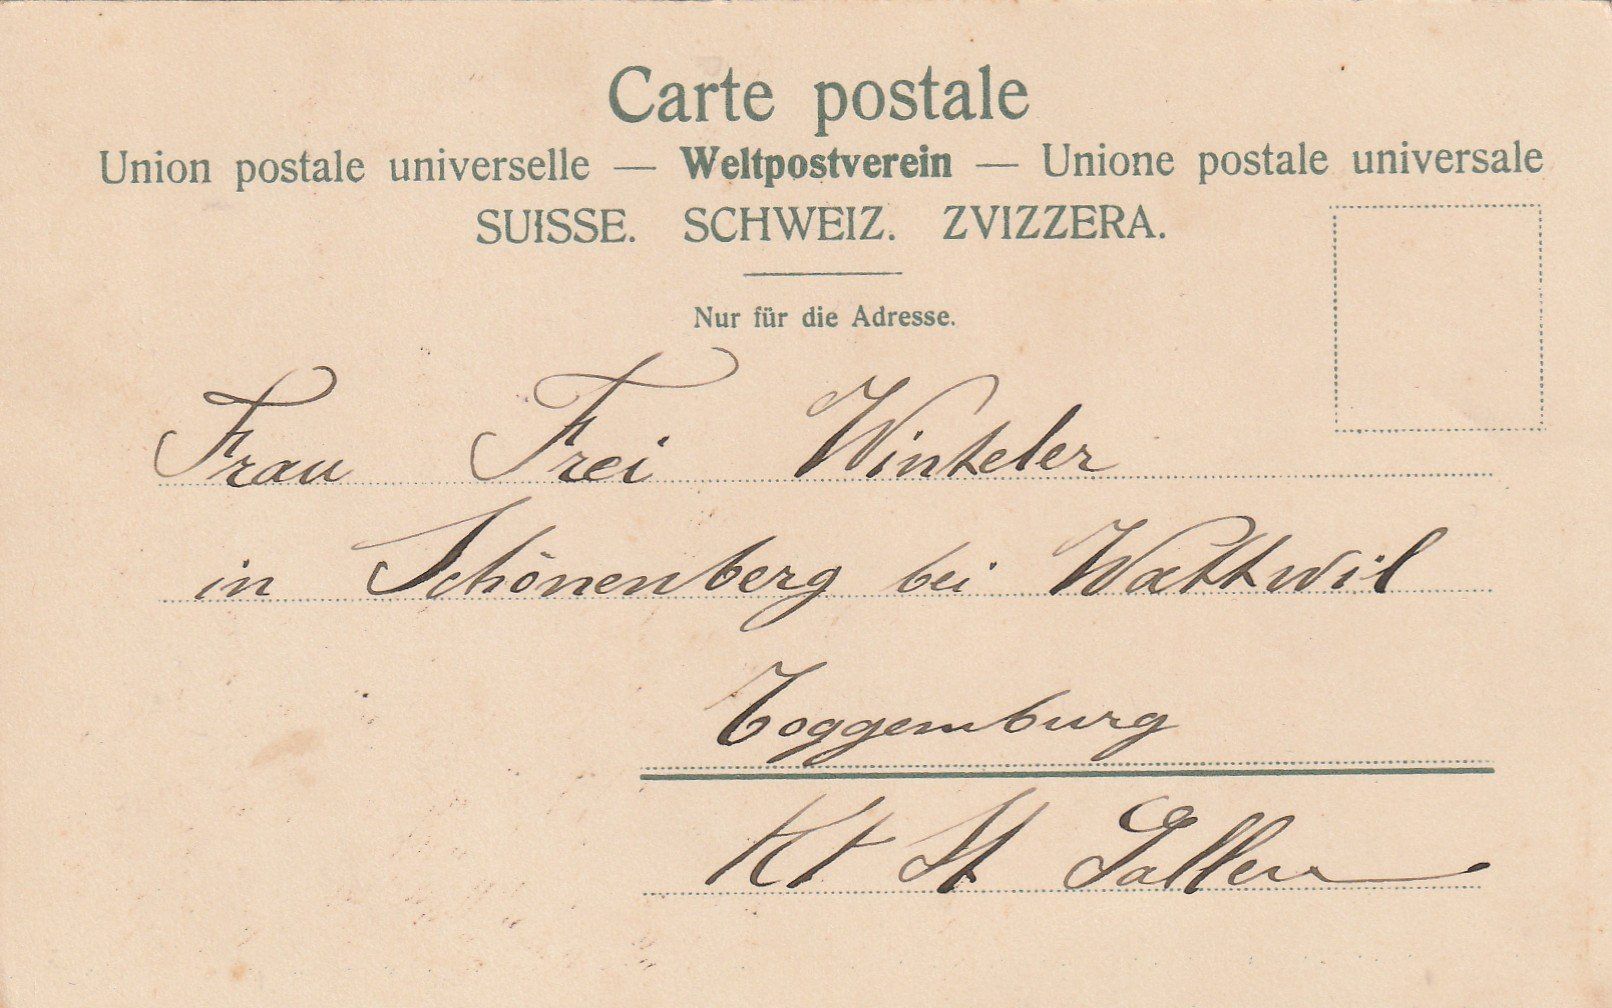 Carte postale
Union postale universelle — Weltpostverein — Unione postale universale
SUISSE. SCHWEIZ. ZVIZZERA.
Nur für die Adresse.
Frau Frei Winteler
in Schönenberg bei Wattwil
Toggemburg
Kt St Gallen